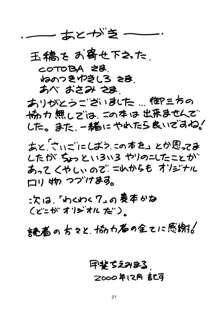 あとがき
玉稿をお寄せ下さった
COTOBA さま
ねのつきゆきしろ さま
あべ おさみ さま
ありがとうございました…御三方の
協力無しでは、この本は出来ませんで
した。また、一緒にやれたら良いですね!
あと、「さいごにしよう、この本を」とか思ってま
したが ちょっといろいろやりのこしたことが
あって くやしいので、これからも オリジナル
ロリ物 つづけます。
次は、「わくわく7」の異本かな
(どこが オリジナルだ)。
読者の方々と、協力者の全てに感謝!
2000年12月 記す
21